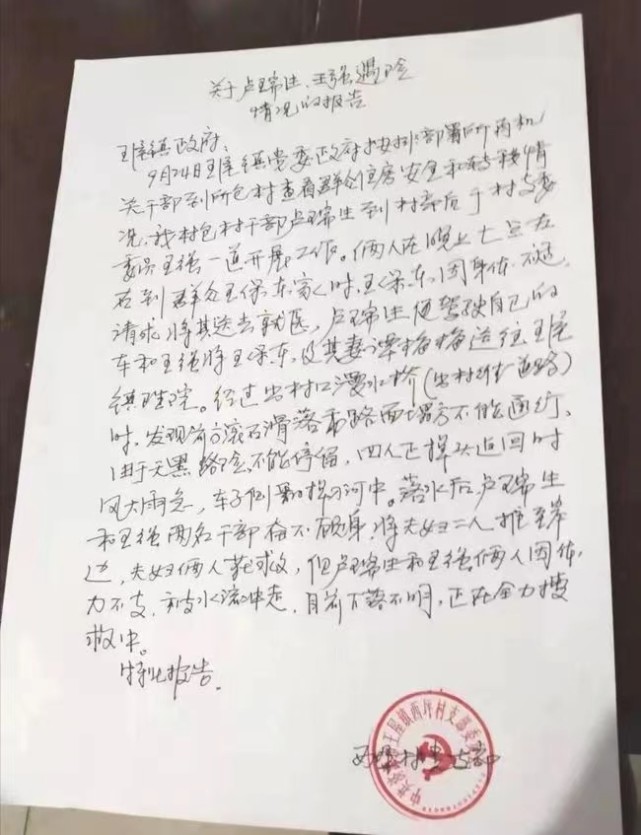 关于卢瑞生、王强遇险
情况的报告
王屋镇政府：
9月24日王屋镇党委政府按排部署所有机
关干部到所包村查看群众住房安全和转移情
况，我村包村干部卢瑞生到村部后于村支委
委员王强一道开展工作。俩人在晚上七点左
右到群众王保东家时，王保东因身体不适，
请求将其送去就医，卢瑞生便驾驶自己的
车和王强将王保东及其妻谭梅梅送往王屋
镇医院。经过出村口漫水桥（出村 道路）
时，发现前方滚石滑落和路面塌方不能通行，
由于天黑路险不能停留，四人正掉头返回时
风大雨急，车子侧翻掉河中。落水后卢瑞生
和王强两名干部奋不顾身，将夫妇二人推至岸
边，夫妇俩人获救，但卢瑞生和王强俩人因体
力不支，被水流冲走，目前下落不明，正在全力搜
救中。
特此报告。
西坪村党支部
王屋镇西坪村支部委